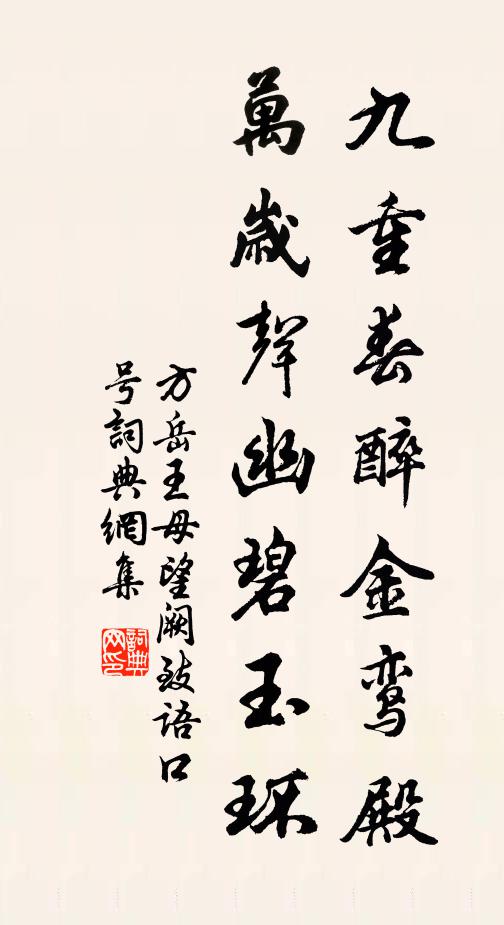 九重春醉金鸾殿
萬歲聲幽碧玉环
方岳王母望阙致语口
号詞典網集
詞典
网印